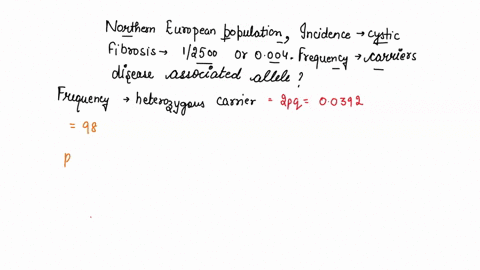 Northern European population, Incidence → cystic
fibrosis → 1/2500 or 0.004. Frequency → carriers
disease associated allele?
Frequency → heterozygous carrier = 2pq = 0.0392
= 98
p